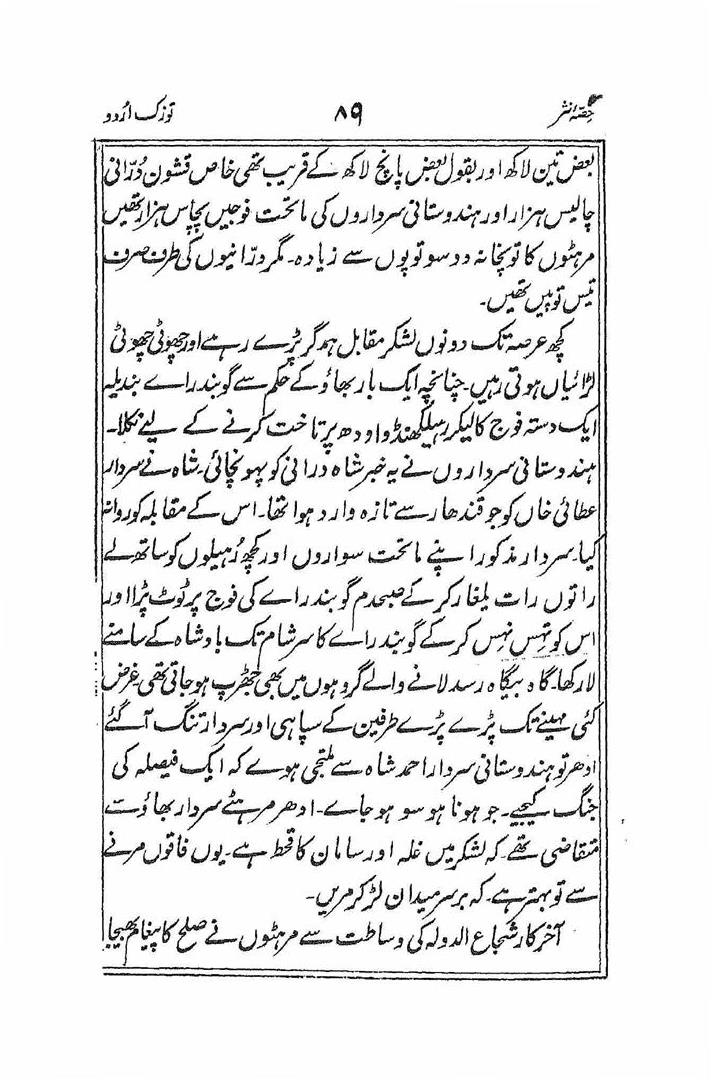 حصۂ نثر ۸۹ توزک اُردو
بعض تین لاکھ اور بقول بعض پانچ لاکھ کے قریب تھی خاص قشون دُرّانی
چالیس ہزار اور ہندوستانی سرداروں کی ماتحت فوجیں پچاس ہزار تھیں
مرہٹوں کا توپخانہ دو سو توپوں سے زیادہ۔ مگر درّانیوں کی طرف صرف
تیس توپیں تھیں۔
کچھ عرصہ تک دونوں لشکر مقابل ہمدگر پڑے رہے اور چھوٹی چھوٹی
لڑائیاں ہوتی رہیں۔ چنانچہ ایک بار بھاؤ کے حکم سے گوبند راے بندیلہ
ایک دستہ فوج کا لیکر رہیلکھنڈ و اودھ پر تاخت کرنے کے لیے نکلا۔
ہندوستانی سرداروں نے یہ خبر شاہ درانی کو پہونچائی۔ شاہ نے سردار
عطائی خاں کو جو قندھار سے تازہ وارد ہوا تھا۔ اس کے مقابلہ کو روانہ
کیا۔ سردار مذکور اپنے ماتحت سواروں اور کچھ رُہیلوں کو ساتھ لے
راتوں رات یلغار کر کے صبحدم گوبند راے کی فوج پر ٹوٹ پڑا اور
اس کو تہس نہس کر کے گوبند راے کا سر شام تک بادشاہ کے سامنے
لا رکھا۔ گاہ و بیگاہ رسد لانے والے گروہوں میں بھی جھڑپ ہو جاتی تھی۔ غرض
کئی مہینے تک پڑے پڑے طرفین کے سپاہی اور سردار تنگ آ گئے
ادھر تو ہندوستانی سردار احمد شاہ سے ملتجی ہوے کہ ایک فیصلہ کی
جنگ کیجیے۔ جو ہونا ہو سو ہو جاے۔ ادھر مرہٹے سردار بھاؤ سے
متقاضی تھے۔ کہ لشکر میں غلہ اور سامان کا قحط ہے۔ یوں فاقوں مرنے
سے تو بہتر ہے۔ کہ برسر میدان لڑ کر مریں۔
آخر کار شجاع الدولہ کی وساطت سے مرہٹوں نے صلح کا پیغام بھیجا